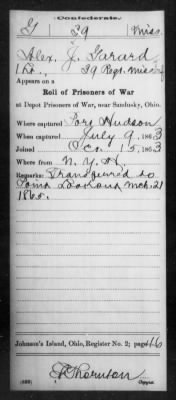 Confederate.
G 39 Miss.
Alex. J. Garard
Lt., 39 Regt. Miss Inf
Appears on a
Roll of Prisoners of War
at Depot Prisoners of War, near Sandusky, Ohio.
Where captured Port Hudson
When captured July 9, 1863
Joined Oct. 15, 1863
Where from N. Y. H.
Remarks: Transferred to
Point Lookout Mch. 21
1865.
Johnson's Island, Ohio, Register No. 2; page 46
Thornton
Copyist.